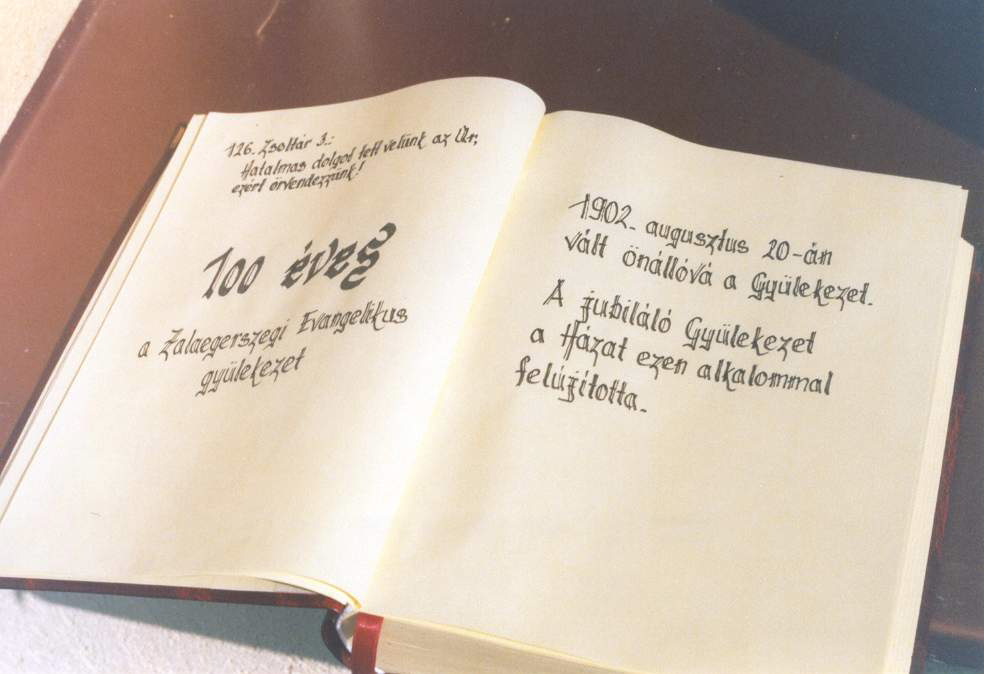 126. Zsoltár 3.:
Hatalmas dolgot tett velünk az Úr,
ezért örvendezzünk!
100 éves
a Zalaegerszegi Evangelikus
gyülekezet
1902. augusztus 20-án
vált önállóvá a Gyülekezet.
A jubiláló Gyülekezet
a Házat ezen alkalommal
felújította.